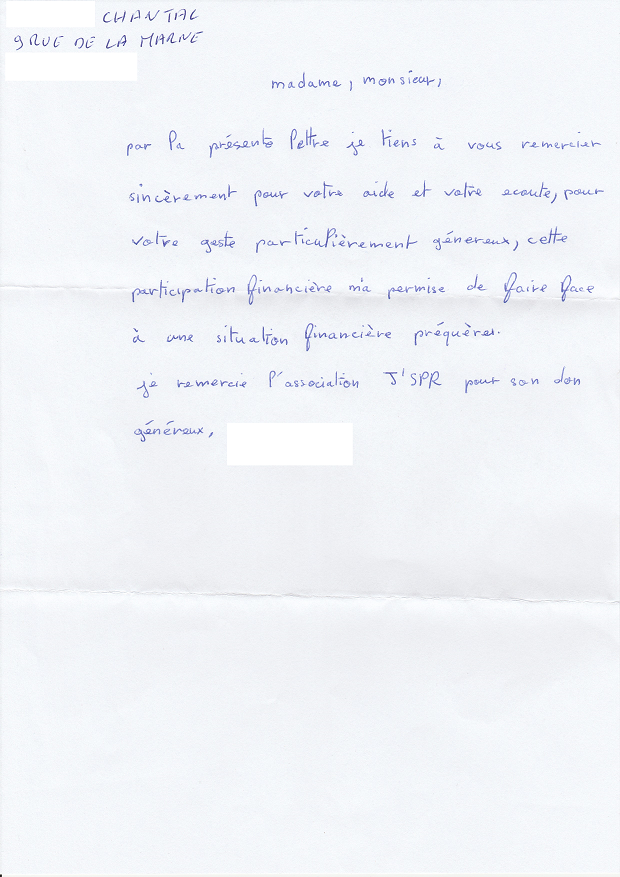 CHANTAL
9 RUE DE LA MARNE
madame, monsieur,
par la présente lettre je tiens à vous remercier
sincèrement pour votre aide et votre ecoute, pour
votre geste particulièrement génereux, cette
participation financière m'a permise de faire face
à une situation financière préquères.
je remercie l'association J'SPR pour son don
généreux,